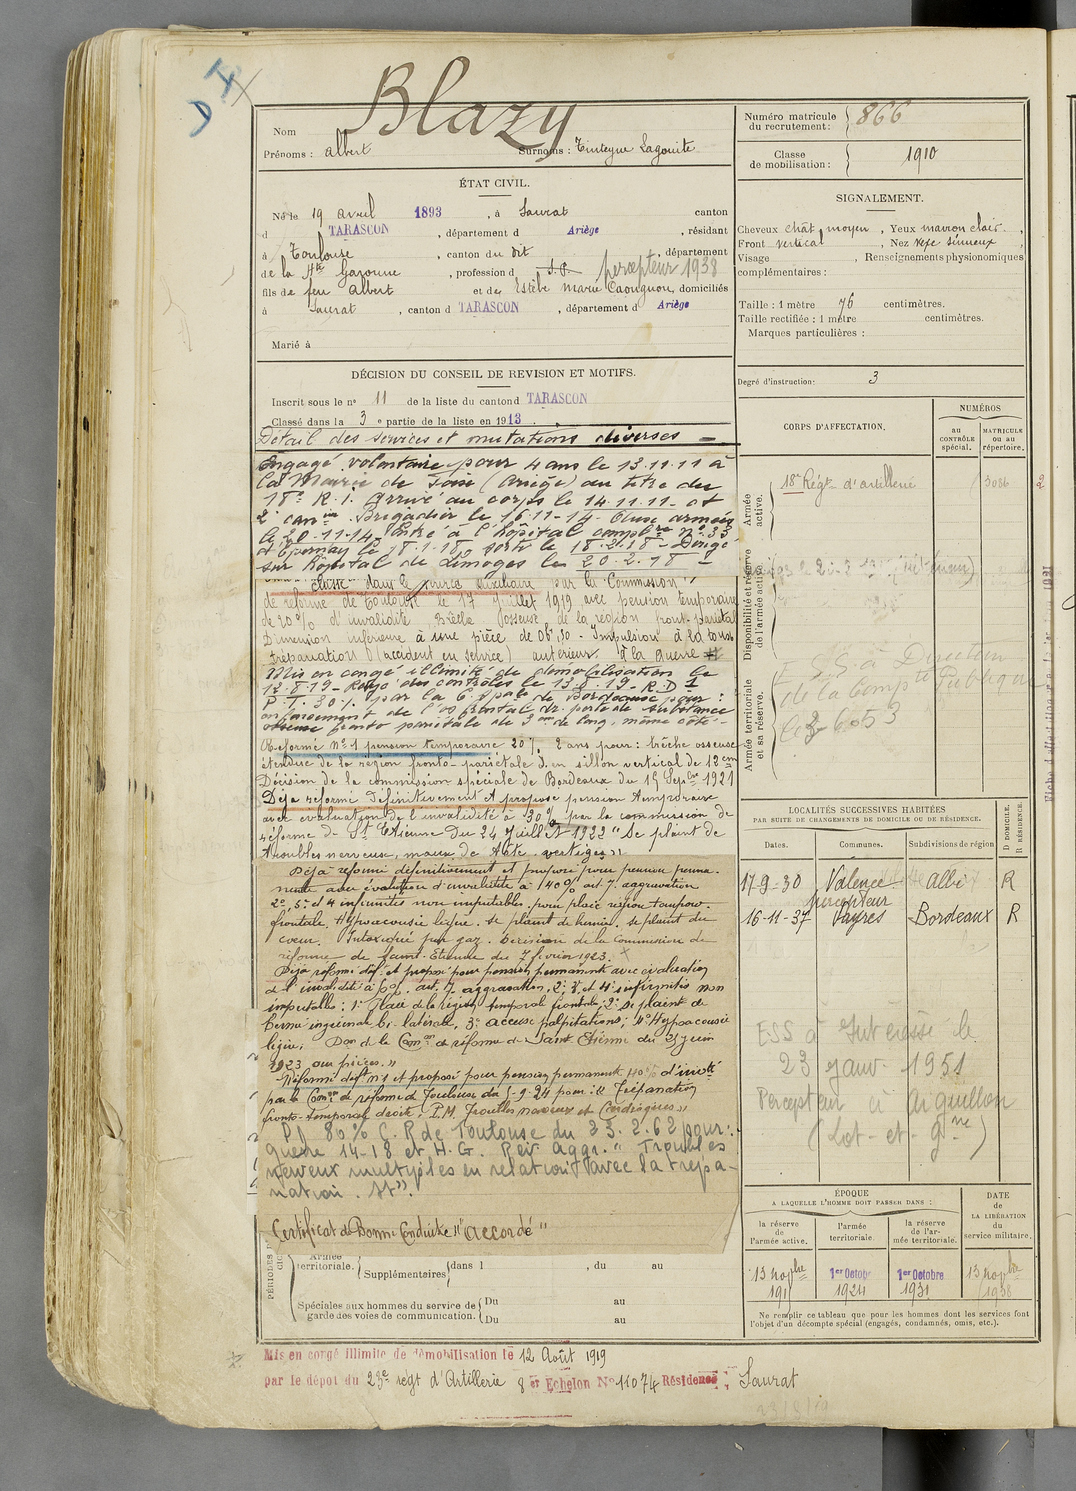 D I
Blazy
Nom
Prénoms : Albert Surnoms : Tinteyne Lagouite
ÉTAT CIVIL.
Né le 19 avril 1893, à Saurat canton
d TARASCON, département d Ariège, résidant
à Toulouse, canton du dit, département
de la Hte Garonne, profession d percepteur 1938
fils de feu Albert et de Estèbe Marie, domiciliés
à Saurat, canton d TARASCON, département d Ariège
Marié à
DÉCISION DU CONSEIL DE REVISION ET MOTIFS.
Inscrit sous le no 11 de la liste du canton d TARASCON
Classé dans la 3e partie de la liste en 1913.
Détail des services et mutations diverses
Engagé volontaire pour 4 ans le 13.11.11 à
la Mairie de Foix (Ariège) au titre du
18e R.A. Arrivé au corps le 14.11.11 et
2e can. Brigadier le 16.11.14. aux armées
le 20.11.14. Entré à l'hôpital complre no 33
d'Epernay le 18.1.18 sorti le 18.2.18. Dirigé
sur hôpital de Limoges le 20.2.18
Classé dans le service auxiliaire par la Commission
de réforme de Toulouse le 17 Juillet 1919 avec pension temporaire
de 20% d'invalidité, Brèche osseuse de la région front. pariétal
Dimension inférieure à une pièce de 0f,50 - Impulsion à la toux
trépanation (accident en service) antérieur à la guerre
Mis en congé illimité de démobilisation le
12.8.19 - Rayé des contrôles le 13.8.19. R.D. 1
P.T. 30% par la C. Spale de Bordeaux pour :
enfoncement de l'os frontal dr. perte de substance
osseuse fronto pariétale de 3 cm de long, même côté.
Réformé No 1 pension temporaire 20% 2 ans pour : brèche osseuse
étendue de la région fronto-pariétale d. en sillon vertical de 12 cm
Décision de la commission spéciale de Bordeaux du 15 Sepbre 1921
Déjà réformé Définitivement et propose pension temporaire
avec évaluation de l'invalidité à 30% par la commission de
réforme de St Etienne du 24 Juillet 1922 "Se plaint de
troubles nerveux, maux de tête, vertiges"
Déjà réformé définitivement et proposé pour pension perma-
nente avec évaluation d'invalidité à 40% art. 7. aggravation
2e, 3e et 4 infirmités non imputables. pour plaie région temporo
frontale. Hypoacousie légère. se plaint de hernie. se plaint du
cœur. Intoxiqué par gaz. Décision de la Commission de
réforme de Saint-Etienne du 7 février 1923.
Déjà réformé déf. et proposé pour pension permanente avec évaluation
de l'invalidité à %. art. 7. aggravation, 2e, 3e et 4e infirmités non
imputables : 1e Plaie de la région temporal frontale ; 2e Se plaint de
hernie inguinale bi-latérale, 3e accuse palpitations ; 4e Hypoacousie
légère. Don de la Comon de réforme de Saint Etienne du 25 juin
1923 sur pièces."
Réformé déft no 1 et proposé pour pension permanente 40% d'invté
par la Comon de réforme de Toulouse du 5-9-24 pour : " Trépanation
fronto-temporal droite. P.M. Troubles nerveux et Cardiaques"
P.D 80% C. R de Toulouse du 23.2.62 pour :
guerre 14-18 et H.G. Rev. Aggr. " Troubles
nerveux multiples en relation avec la trépa-
nation. St".
Certificat de Bonne Conduite "accordé"
PÉRIODES D'
Armée
territoriale. Supplémentaires dans l , du au
Spéciales aux hommes du service de Du au
garde des voies de communication. Du au
Mis en congé illimité de démobilisation le 12 Août 1919
par le dépôt du 23e regt d'Artillerie 8 er Echelon No 11074 Résidence : Saurat
Numéro matricule
du recrutement : 866
Classe
de mobilisation : 1910
SIGNALEMENT.
Cheveux chât. moyen, Yeux marron clair,
Front vertical, Nez sinueux,
Visage , Renseignements physionomiques
complémentaires :
Taille : 1 mètre 76 centimètres.
Taille rectifiée : 1 mètre centimètres.
Marques particulières :
Degré d'instruction : 3
CORPS D'AFFECTATION.
NUMÉROS
au CONTRÔLE spécial.
MATRICULE ou au répertoire.
Armée active.
18e Régt d'artillerie 3086
Disponibilité et réserve de l'armée active.
Armée territoriale et sa réserve.
E.S.S. à Direction
de la Compté Publique
le 2.6.53
LOCALITÉS SUCCESSIVES HABITÉES
PAR SUITE DE CHANGEMENTS DE DOMICILE OU DE RÉSIDENCE.
D DOMICILE. R RÉSIDENCE.
Dates. Communes. Subdivisions de région
17-9-30 Valence Albi R
percepteur
16-11-37 Vayres Bordeaux R
ESS à Intéressé le
23 janv. 1951
Percepteur à Aiguillon
(Lot-et-Gne)
ÉPOQUE
A LAQUELLE L'HOMME DOIT PASSER DANS :
DATE
DE
LA LIBÉRATION
du
service militaire.
la réserve de l'armée active.
l'armée territoriale.
la réserve de l'armée territoriale.
13 novbre 191
1er Octobre 1924
1er Octobre 1931
13 novbre 1938
Ne remplir ce tableau que pour les hommes dont les services font
l'objet d'un décompte spécial (engagés, condamnés, omis, etc.).